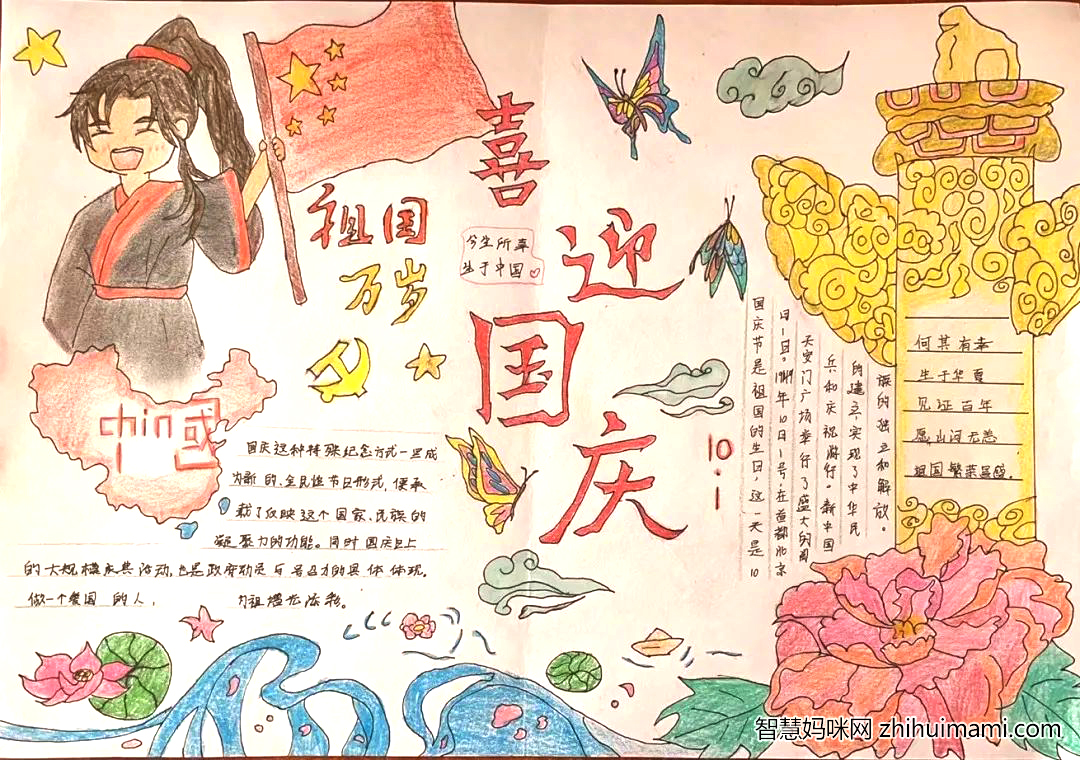 喜
迎
国
庆
祖国
万岁
今生所幸
生于中国
chin国
10.1
国庆这种特殊纪念方式一旦成
为新的、全民性节日形式,便承
载了反映这个国家、民族的
凝聚力的功能。同时国庆日上
的大规模庆典活动,也是政府动员与号召力的具体体现。
做一个爱国 的人,
为祖增光添彩。
国庆节是祖国的生日,这一天是10
月1日。1949年10月1号,在首都北京
天安门广场举行了盛大的阅
兵和庆祝游行。新中国
的建立,实现了中华民
族的独立和解放。
何其有幸
生于华夏
见证百年
愿山河无恙
祖国繁荣昌盛。
智慧妈咪网 zhihuimami.com